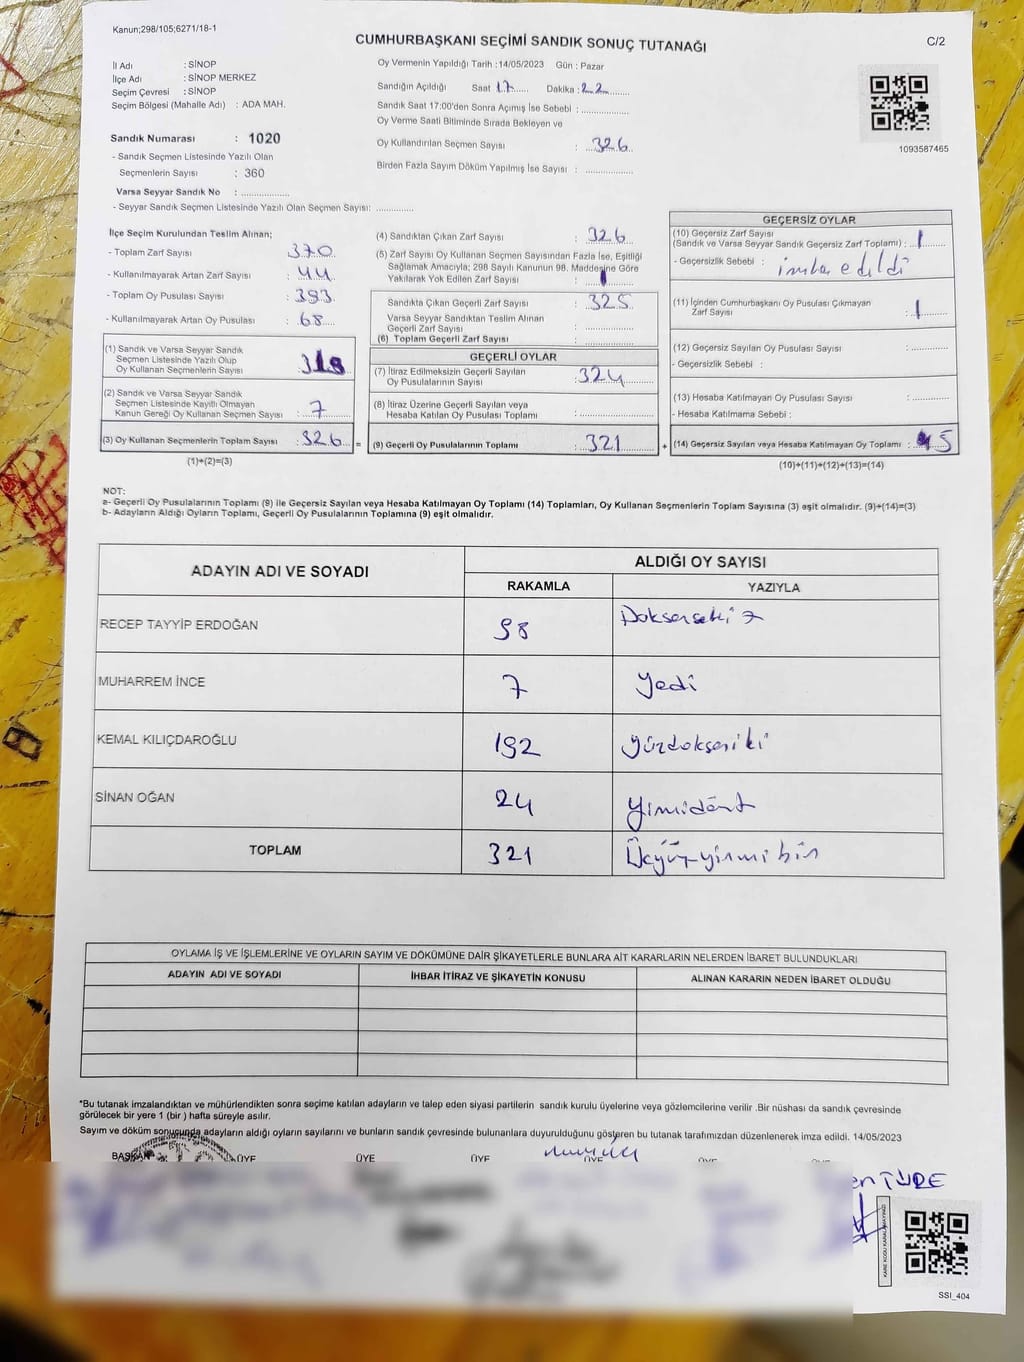 Kanun;298/105;6271/18-1
CUMHURBAŞKANI SEÇİMİ SANDIK SONUÇ TUTANAĞI
C/2
İl Adı : SİNOP
İlçe Adı : SİNOP MERKEZ
Seçim Çevresi : SİNOP
Seçim Bölgesi (Mahalle Adı) : ADA MAH.
Sandık Numarası : 1020
- Sandık Seçmen Listesinde Yazılı Olan
Seçmenlerin Sayısı : 360
Varsa Seyyar Sandık No : ....................
- Seyyar Sandık Seçmen Listesinde Yazılı Olan Seçmen Sayısı: ............
Oy Vermenin Yapıldığı Tarih :14/05/2023 Gün : Pazar
Sandığın Açıldığı Saat 17 Dakika : 22
Sandık Saat 17:00'den Sonra Açımış İse Sebebi : ...............
Oy Verme Saati Bitiminde Sırada Bekleyen ve
Oy Kullandırılan Seçmen Sayısı : 326
Birden Fazla Sayım Döküm Yapılmış İse Sayısı : ...............
1093587465
İlçe Seçim Kurulundan Teslim Alınan;
- Toplam Zarf Sayısı : 370
- Kullanılmayarak Artan Zarf Sayısı : 44
- Toplam Oy Pusulası Sayısı : 393
- Kullanılmayarak Artan Oy Pusulası : 68
(1) Sandık ve Varsa Seyyar Sandık
Seçmen Listesinde Yazılı Olup
Oy Kullanan Seçmenlerin Sayısı :
(2) Sandık ve Varsa Seyyar Sandık
Seçmen Listesinde Kayıtlı Olmayan
Kanun Gereği Oy Kullanan Seçmen Sayısı : 7
(3) Oy Kullanan Seçmenlerin Toplam Sayısı : 326 =
(1)+(2)=(3)
(4) Sandıktan Çıkan Zarf Sayısı : 326
(5) Zarf Sayısı Oy Kullanan Seçmen Sayısından Fazla İse, Eşitliği
Sağlamak Amacıyla; 298 Sayılı Kanunun 98. Maddesine Göre
Yakılarak Yok Edilen Zarf Sayısı :
Sandıkta Çıkan Geçerli Zarf Sayısı : 325
Varsa Seyyar Sandıktan Teslim Alınan
Geçerli Zarf Sayısı :
(6) Toplam Geçerli Zarf Sayısı :
GEÇERLİ OYLAR
(7) İtiraz Edilmeksizin Geçerli Sayılan
Oy Pusulalarının Sayısı : 324
(8) İtiraz Üzerine Geçerli Sayılan veya
Hesaba Katılan Oy Pusulası Toplamı :
(9) Geçerli Oy Pusulalarının Toplamı : 321 +
GEÇERSİZ OYLAR
(10) Geçersiz Zarf Sayısı
(Sandık ve Varsa Seyyar Sandık Geçersiz Zarf Toplamı) : 1
- Geçersizlik Sebebi : imha edildi
(11) İçinden Cumhurbaşkanı Oy Pusulası Çıkmayan
Zarf Sayısı : 1
(12) Geçersiz Sayılan Oy Pusulası Sayısı :
- Geçersizlik Sebebi :
(13) Hesaba Katılmayan Oy Pusulası Sayısı :
- Hesaba Katılmama Sebebi :
(14) Geçersiz Sayılan veya Hesaba Katılmayan Oy Toplamı : 5
(10)+(11)+(12)+(13)=(14)
NOT:
a- Geçerli Oy Pusulalarının Toplamı (9) ile Geçersiz Sayılan veya Hesaba Katılmayan Oy Toplamı (14) Toplamları, Oy Kullanan Seçmenlerin Toplam Sayısına (3) eşit olmalıdır. (9)+(14)=(3)
b- Adayların Aldığı Oyların Toplamı, Geçerli Oy Pusulalarının Toplamına (9) eşit olmalıdır.
ADAYIN ADI VE SOYADI
ALDIĞI OY SAYISI
RAKAMLA
YAZIYLA
RECEP TAYYİP ERDOĞAN 98 Doksansekiz
MUHARREM İNCE 7 Yedi
KEMAL KILIÇDAROĞLU 192 Yüzdokseniki
SİNAN OĞAN 24 Yimidört
TOPLAM 321 Üçyüzyirmibir
OYLAMA İŞ VE İŞLEMLERİNE VE OYLARIN SAYIM VE DÖKÜMÜNE DAİR ŞİKAYETLERLE BUNLARA AİT KARARLARIN NELERDEN İBARET BULUNDUKLARI
ADAYIN ADI VE SOYADI
İHBAR İTİRAZ VE ŞİKAYETİN KONUSU
ALINAN KARARIN NEDEN İBARET OLDUĞU
*Bu tutanak imzalandıktan ve mühürlendikten sonra seçime katılan adayların ve talep eden siyasi partilerin sandık kurulu üyelerine veya gözlemcilerine verilir .Bir nüshası da sandık çevresinde
görülecek bir yere 1 (bir ) hafta süreyle asılır.
Sayım ve döküm sonucunda adayların aldığı oyların sayılarını ve bunların sandık çevresinde bulunanlara duyurulduğunu gösteren bu tutanak tarafımızdan düzenlenerek imza edildi. 14/05/2023
BAŞKAN ÜYE ÜYE ÜYE ÜYE ÜYE
KARE KODU KARALAMAYINIZ!
SSI_404